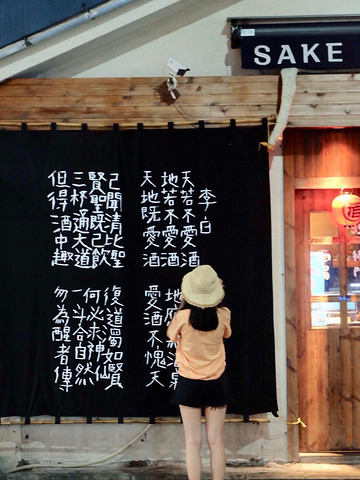 SAKE
李白
天若不愛酒
地若不愛酒
地
天地既愛酒
愛酒不愧天
己聞清比聖
復道濁如賢
賢聖既己飲
何必求神仙
三杯通大道
一斗合自然
但得酒中趣
勿為醒者傳